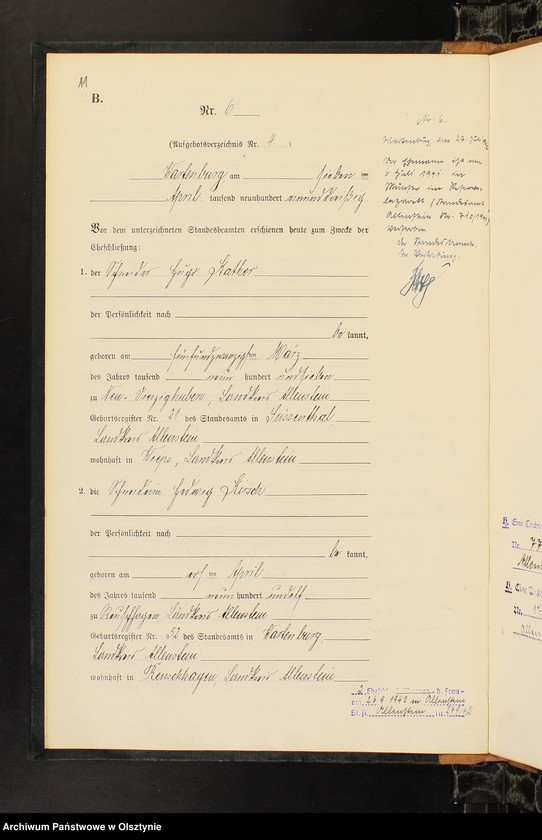 11
B.
Nr. 6
(Aufgebotsverzeichnis Nr. 4.)
Wartenburg am sieben ten
April tausend neunhundert neununddreißig
Vor dem unterzeichneten Standesbeamten erschienen heute zum Zwecke der
Eheschließung:
1. der Schneider Hugo Kather
der Persönlichkeit nach
be kannt,
geboren am fünfundzwanzigsten März
des Jahres tausend neun hundert undsieben
zu Neu-Vierzighuben, Landkreis Allenstein
Geburtsregister Nr. 21 des Standesamts in
Landkreis Allenstein
wohnhaft in Wieps, Landkreis Allenstein
2. die Schneiderin Hedwig Kirsch
der Persönlichkeit nach
be kannt,
geboren am elften April
des Jahres tausend neun hundert undelf
zu Reuschhagen Landkreis Allenstein
Geburtsregister Nr. 52 des Standesamts in Wartenburg
Landkreis Allenstein
wohnhaft in Reuschhagen, Landkreis Allenstein
Nr. 6.
Wartenburg, den
Der Ehemann ist am
Juli 1941 in
Münster im Reserve-
lazarett (Standesamt
Allenstein Nr.
verstorben.
Der Standesbeamte.
In Vertretung.
d. Frau
am 26.9.1942 in Allenstein
Allenstein Nr.
H. Eine Tochter
Nr. 77
Allens
H. Eine
Nr.
Archiwum Państwowe w Olsztynie